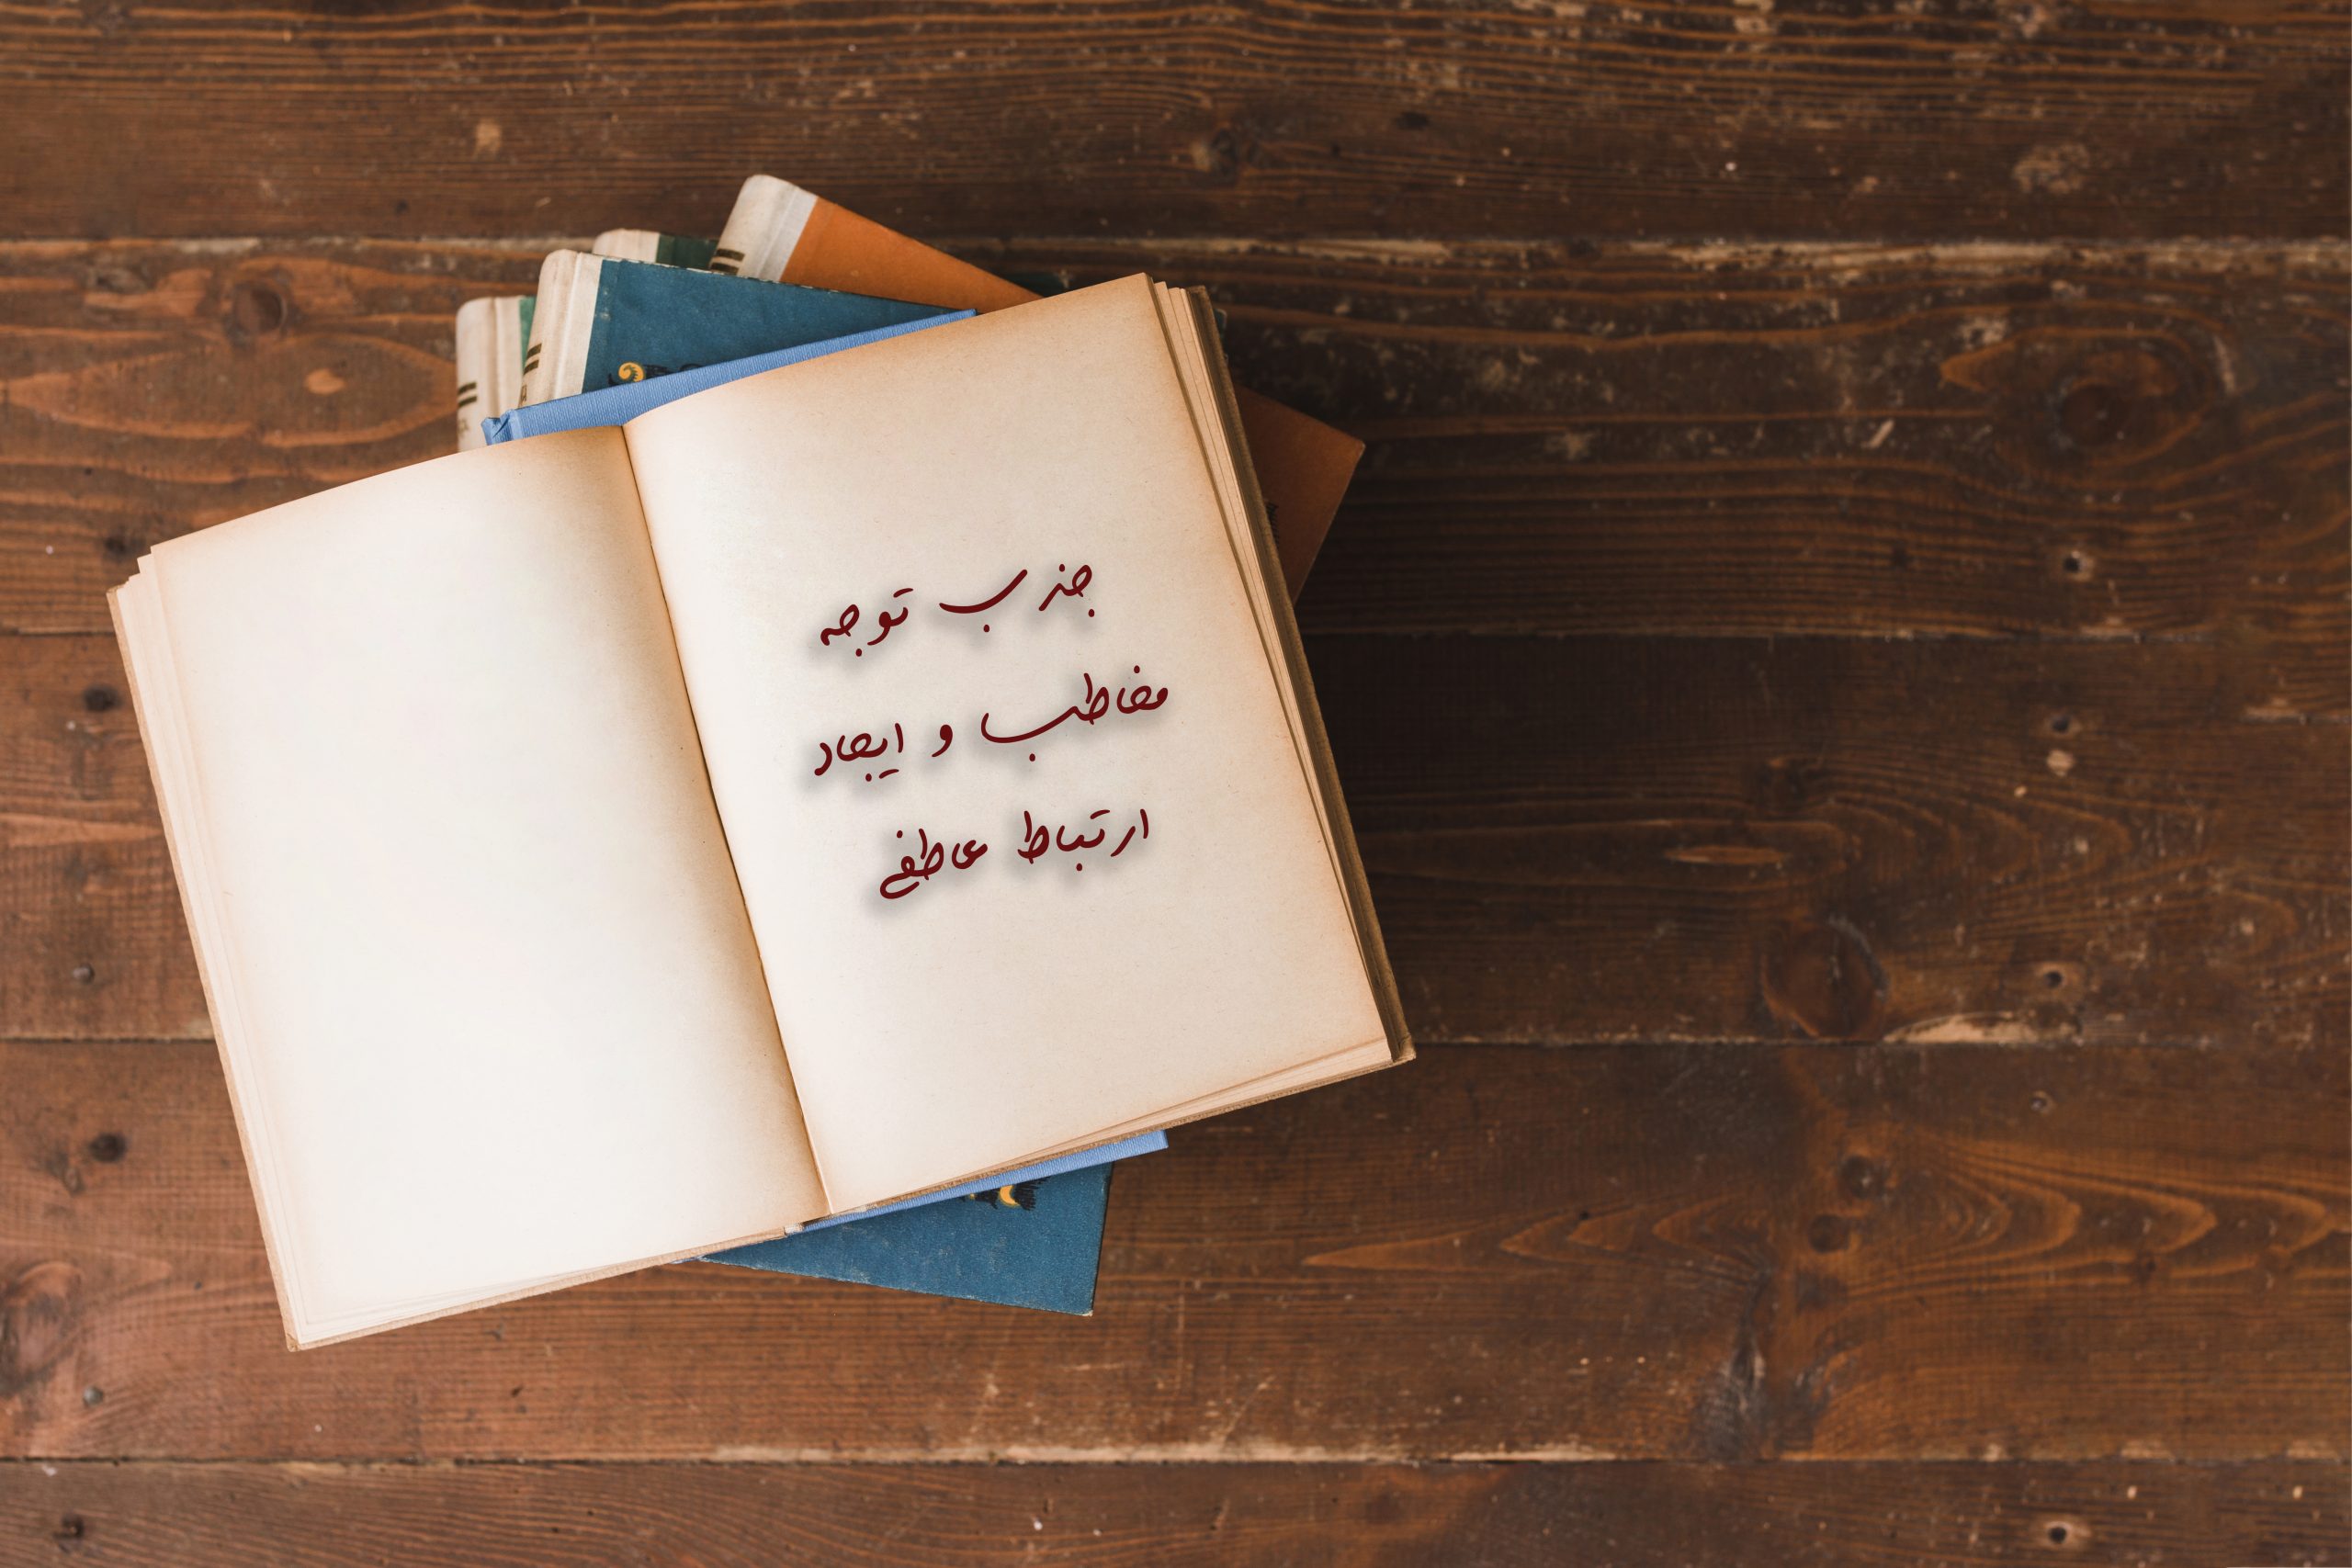 جذب توجه
مخاطب و ایجاد
ارتباط عاطفی